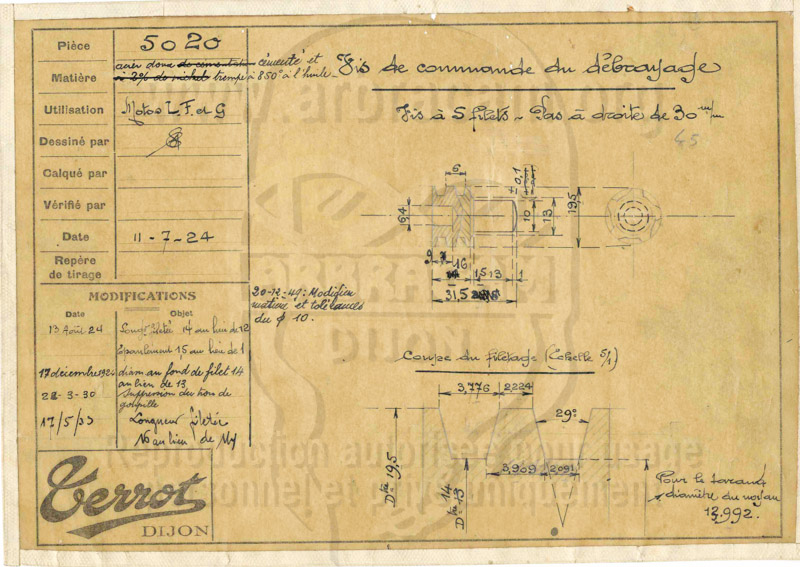 Pièce 5020
Matière acier doux de cementation cémenté et
à 3% de nickel trempe à 850° à l'huile
Utilisation Motos L. F. et G
Dessiné par
Calqué par
Vérifié par
Date 11-7-24
Repère
de tirage
MODIFICATIONS
Date Objet
13 Août 24 Long. filetée 14 au lieu de 12
Epaulement 15 au lieu de 1
17 décembre 1924 diam au fond de filet 14
au lieu de 13
22-3-30 suppression des trous de
goupille
17/5/33 Longueur filetée
16 au lieu de 14
Terrot
DIJON
Vis de commande du débrayage
Vis à 5 filets - Pas à droite de 30 m/m
45
6
± 0,1
6,4
10
13
19,5
9
16
15
13
1
31,5
20-12-49: Modifier
matière et tolérances
du ø 10.
Coupe du filetage (Echelle 5/1)
3,776
2,224
29°
3,909
2,091
Dtre 19,5
Dtre 14
13
Pour le taraud
diamètre du noyau
13,992.
Reproduction autorisée pour usage
personnel et privé uniquement